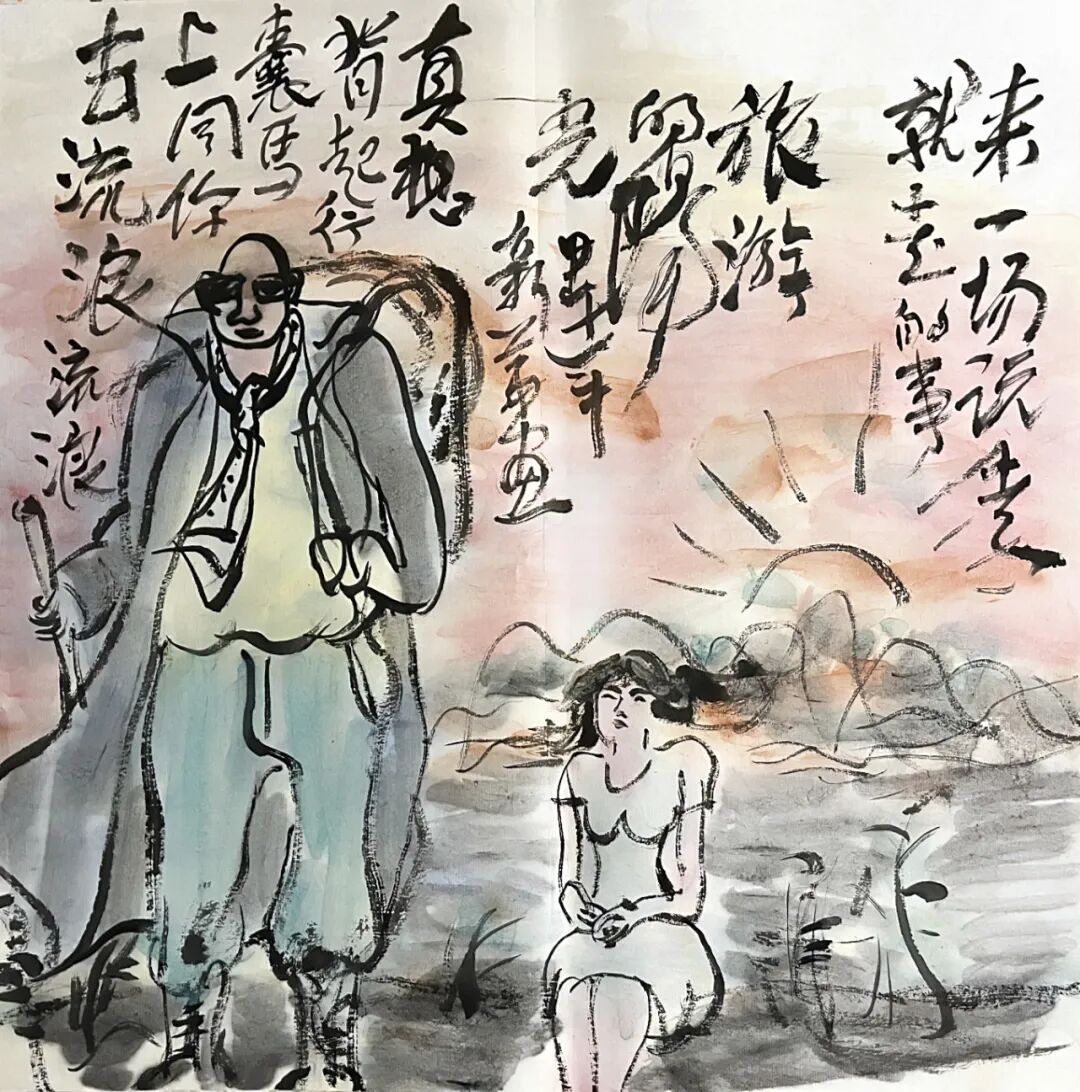 来一场说走
就走的事
旅游
的陽
光
真想
背起行
囊馬
上同你
去流浪流浪